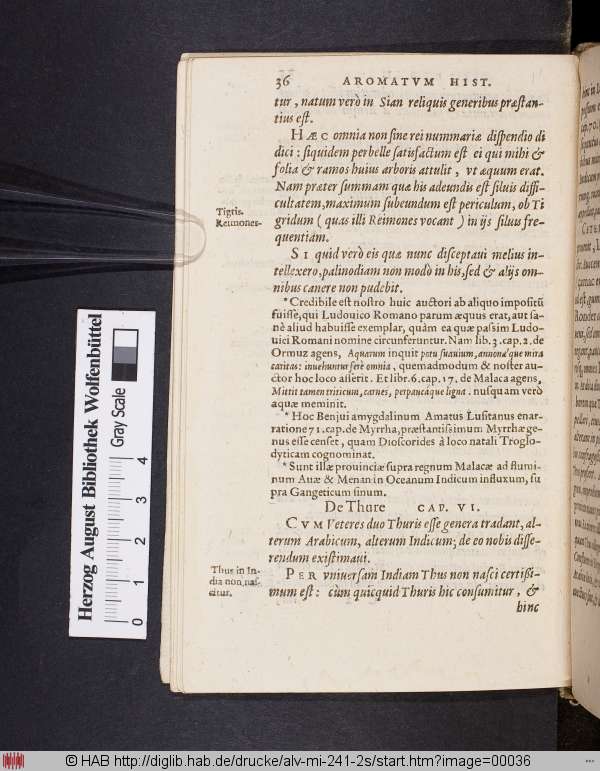 36 AROMATVM HIST.
tur, natum verò in Sian reliquis generibus præstan-
tius est.
HÆC omnia non sine rei nummariæ dispendio di
dici: siquidem perbelle satisfactum est ei qui mihi &
folia & ramos huius arboris attulit, vt æquum erat.
Nam præter summam qua his adeundis est siluis diffi-
cultatem, maximum subeundum est periculum, ob Ti
Tigris.
Reimones.
gridum (quas illi Reimones vocant) in ijs siluis fre-
quentiam.
SI quid verò eis quæ nunc disceptaui melius in-
tellexero, palinodiam non modò in his, sed & alijs om-
nibus canere non pudebit.
*Credibile est nostro huic auctori ab aliquo impositū
fuisse, qui Ludouico Romano parum æquus erat, aut sa-
nè aliud habuisse exemplar, quàm ea quæ passim Ludo-
uici Romani nomine circunferuntur. Nam lib. 3. cap. 2. de
Ormuz agens, Aquarum inquit potu suauium, annonæque mira
caritas: inuehuntur ferè omnia, quemadmodum & noster au-
ctor hoc loco asserit. Et libr. 6. cap. 17. de Malaca agens,
Mittit tamen triticum, carnes, perpaucáque ligna. nusquam verò
aquæ meminit.
*Hoc Benjui amygdalinum Amatus Lusitanus enar-
ratione 71. cap. de Myrrha, præstantissimum Myrrhæ ge-
nus esse censet, quam Dioscorides à loco natali Troglo-
dyticam cognominat.
*Sunt illæ prouinciæ supra regnum Malacæ ad flumi-
num Auæ & Menan in Oceanum Indicum influxum, su
pra Gangeticum sinum.
De Thure CAP. VI.
CVM Veteres duo Thuris esse genera tradant, al-
terum Arabicum, alterum Indicum; de eo nobis disse-
rendum existimaui.
Thus in In-
dia non nas-
citur.
PER vniuersam Indiam Thus non nasci certißi-
mum est: cùm quicquid Thuris hic consumitur, &
hinc
Herzog August Bibliothek Wolfenbüttel
Gray Scale
0 1 2 3 4
© HAB http://diglib.hab.de/drucke/alv-mi-241-2s/start.htm?image=00036